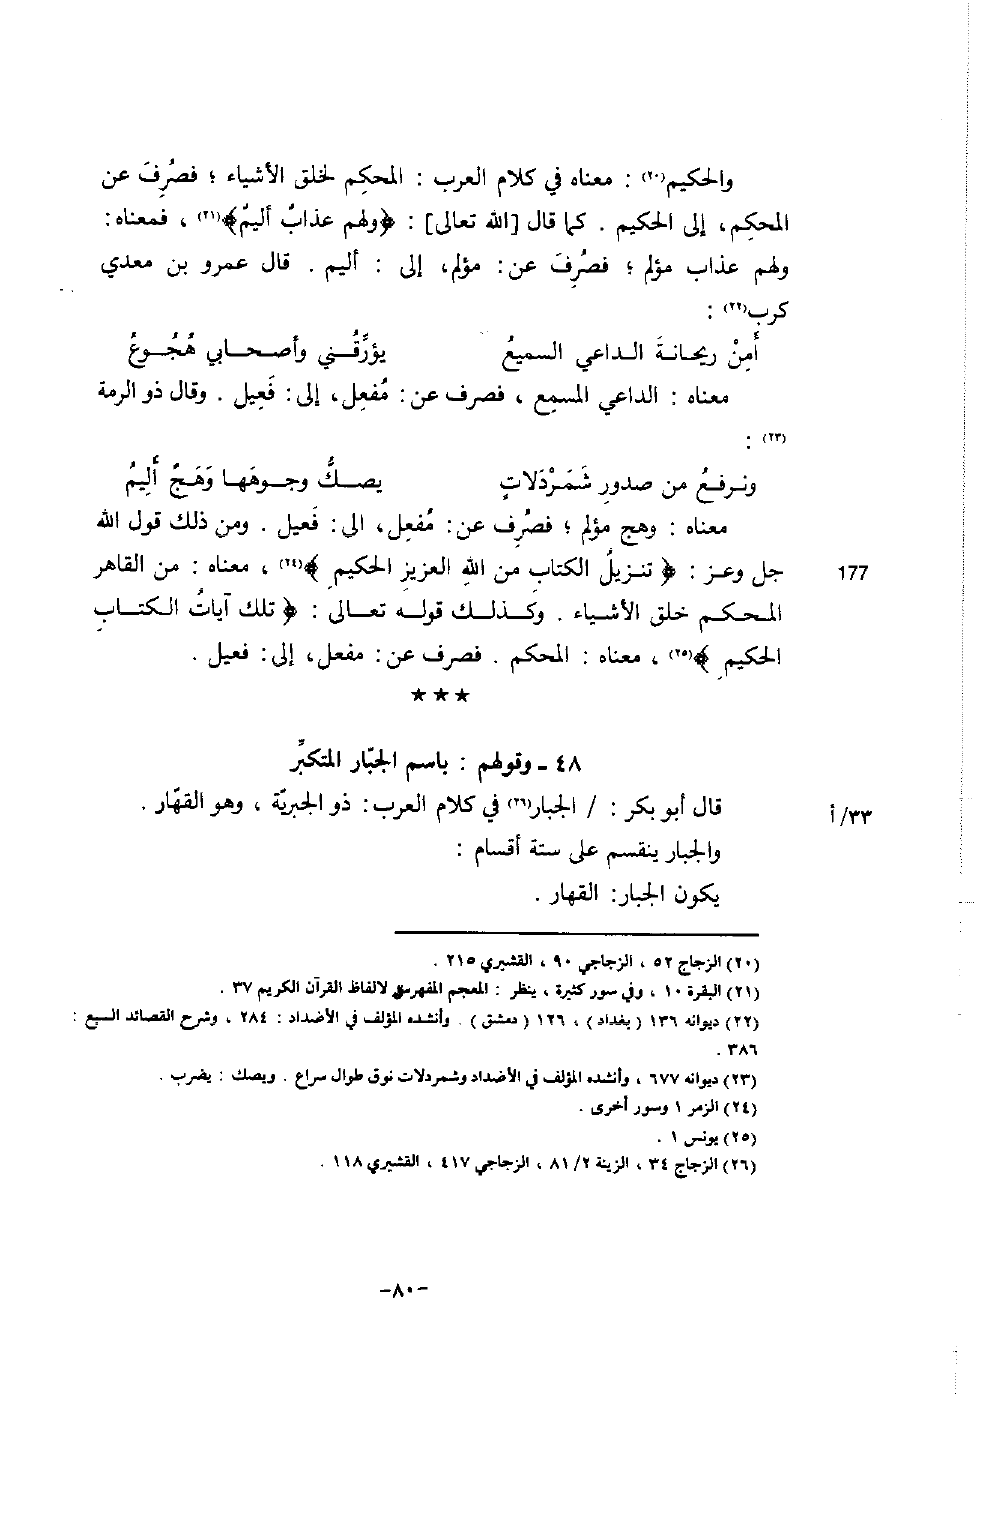 والحكيم(٢٠) : معناه في كلام العرب : المحكِم لخلق الأشياء ؛ فصُرِفَ عن
المحكِم، إلى الحكيم . كما قال [الله تعالى] : ﴿ولهم عذابٌ أليمٌ﴾(٢١) ، فمعناه:
ولهم عذاب مؤلم ؛ فصُرِفَ عن: مؤلم، إلى : أليم . قال عمرو بن معدي
كرب(٢٢) :
أَمِنْ ريحانةَ الداعي السميعُ يؤرِّقُني وأصحابي هُجُوعُ
معناه : الداعي المسمِع ، فصرف عن: مُفعِل، إلى: فَعِيل . وقال ذو الرمة
(٢٣) :
ونرفعُ من صدورِ شَمَرْدَلاتٍ يصكُّ وجوهَها وَهَجٌ أَلِيمُ
معناه : وهج مؤلم ؛ فصُرِف عن: مُفعِل، الى: فَعيل . ومن ذلك قول الله
جل وعز : ﴿ تنزيلُ الكتابِ من اللهِ العزيزِ الحكيمِ ﴾(٢٤) ، معناه : من القاهر 177
المحكم خلق الأشياء . وكذلك قوله تعالى : ﴿ تلك آياتُ الكتابِ
الحكيمِ ﴾(٢٥) ، معناه : المحكم . فصرف عن: مفعل، إلى: فعيل .
★★★
٤٨ ـ وقولهم : باسم الجبّار المتكبِّر
قال أبو بكر : / الجبار(٢٦) في كلام العرب: ذو الجبريّة ، وهو القهّار . ٣٣/أ
والجبار ينقسم على ستة أقسام :
يكون الجبار: القهار .
(٢٠) الزجاج ٥٢ ، الزجاجي ٩٠ ، القشيري ٢١٥ .
(٢١) البقرة ١٠ ، وفي سور كثيرة ، ينظر : المعجم المفهرس لالفاظ القرآن الكريم ٣٧ .
(٢٢) ديوانه ١٣٦ ( بغداد ) ، ١٢٦ ( دمشق ) . وأنشده المؤلف في الأضداد : ٢٨٤ ، وشرح القصائد السبع :
٣٨٦ .
(٢٣) ديوانه ٦٧٧ ، وأنشده المؤلف في الأضداد وشمردلات نوق طوال سراع . ويصك : يضرب .
(٢٤) الزمر ١ وسور أخرى .
(٢٥) يونس ١ .
(٢٦) الزجاج ٣٤ ، الزينة ٢/ ٨١ ، الزجاجي ٤١٧ ، القشيري ١١٨ .
-٨٠-